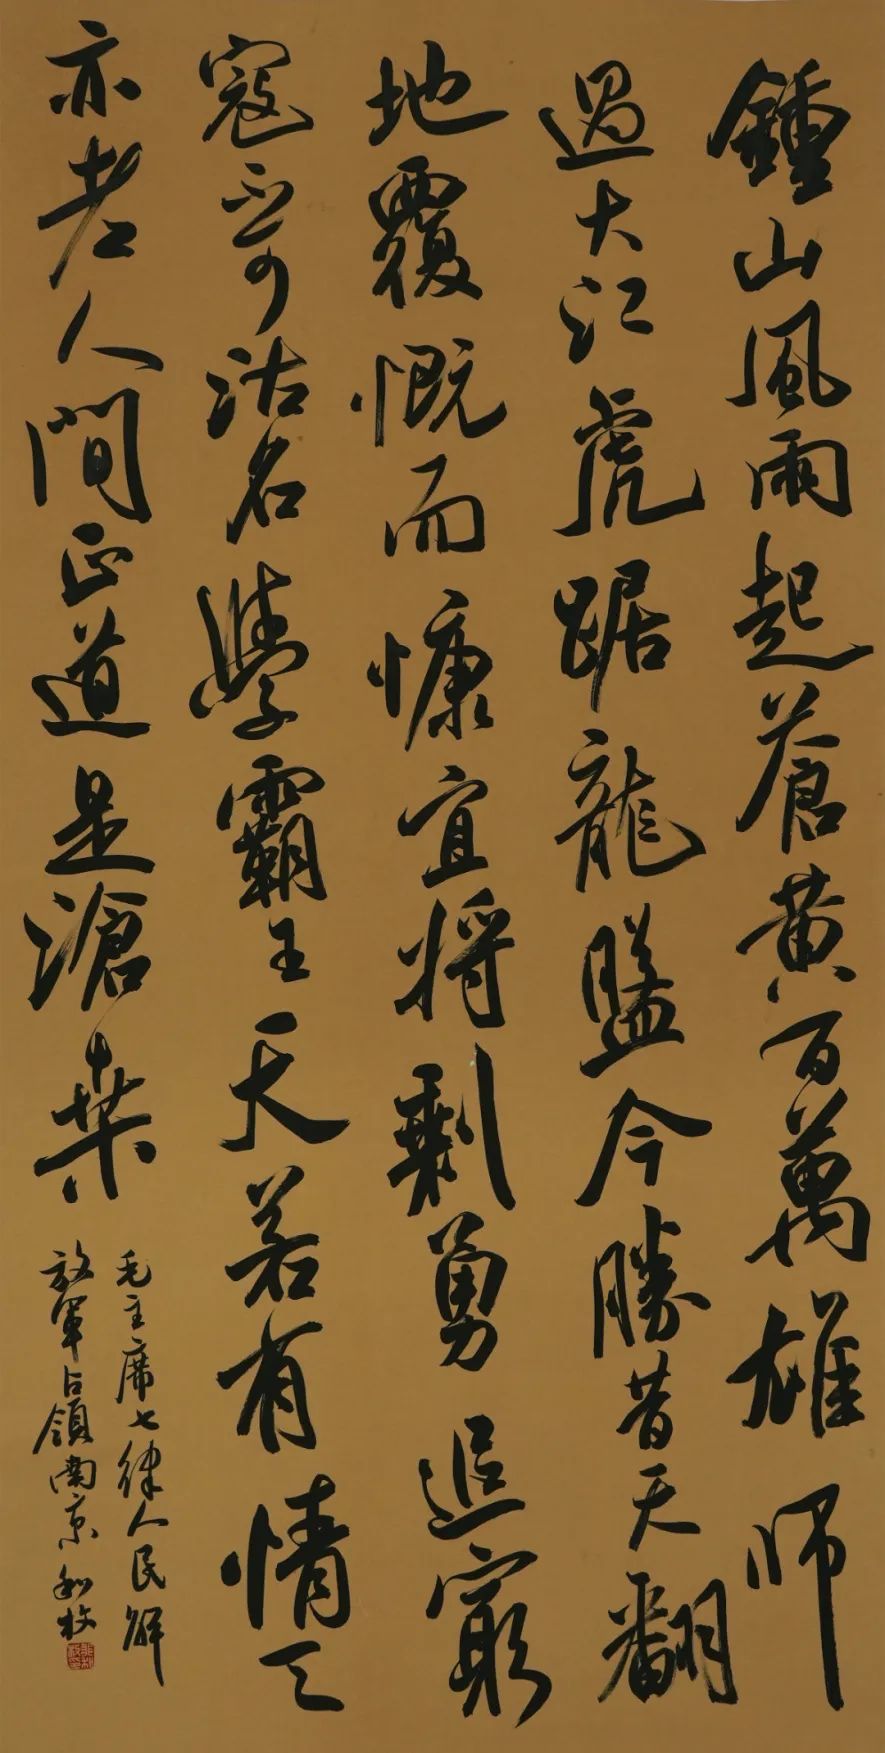 鍾山風雨起蒼黃百萬雄師
過大江虎踞龍盤今勝昔天翻
地覆慨而慷宜將剩勇追窮
寇不可沽名學霸王天若有情天
亦老人間正道是滄桑
毛主席七律人民解
放軍占領南京